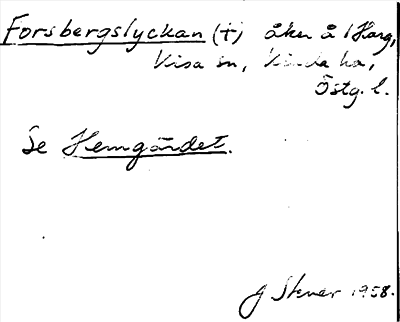 Forsbergslyckan (†) åker å 1 Harg,
Visa sn, Kinda hd,
Östg. l.
Se Hemgärdet.
J Stener 1958.